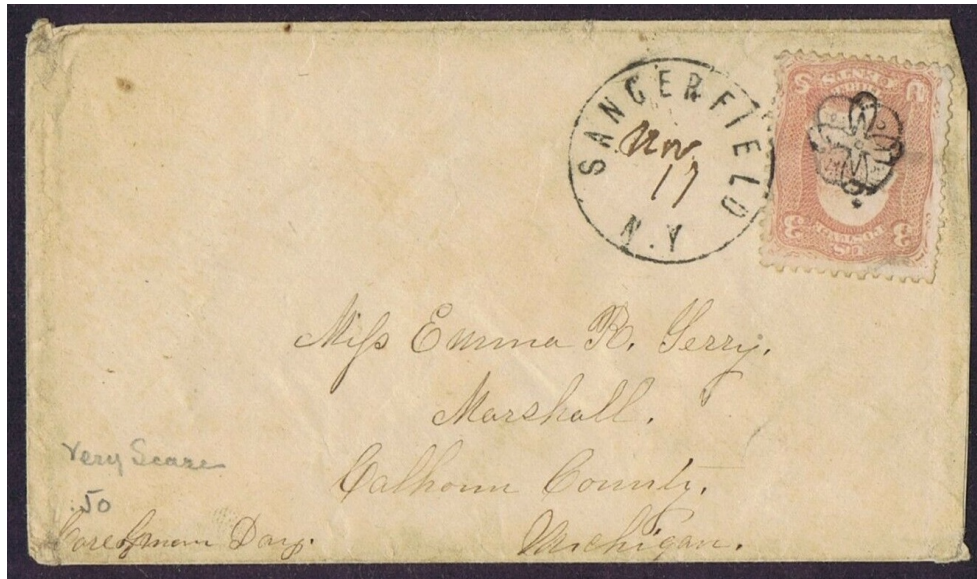 SANGERFIELD
Nov.
17
N.Y
U S
3 3
Miss Emma R. Gerry.
Marshall.
Calhoun County.
Michigan.
Very Scarce
.50
Care of Day.